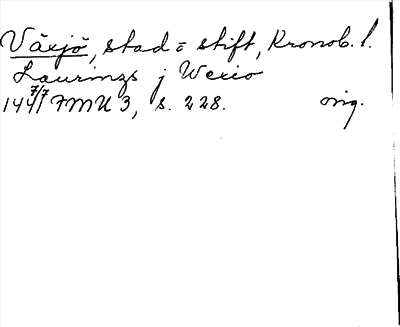 Växjö, stad = stift, Kronob. l.
Laurinzs j Wexio
1441 7/7 FMU 3, s. 228. orig.